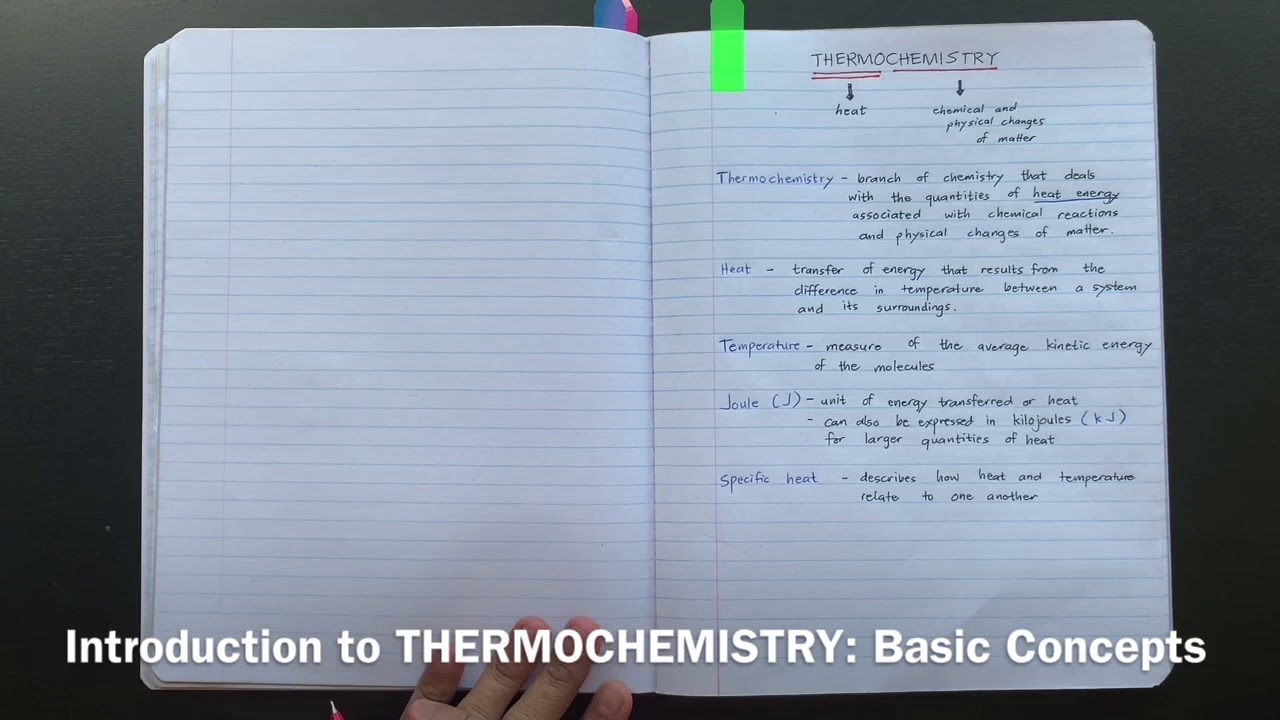 THERMOCHEMISTRY
heat
chemical and
physical changes
of matter
Thermochemistry - branch of chemistry that deals
with the quantities of heat energy
associated with chemical reactions
and physical changes of matter.
Heat - transfer of energy that results from the
difference in temperature between a system
and its surroundings.
Temperature - measure of the average kinetic energy
of the molecules
Joule (J) - unit of energy transferred or heat
- can also be expressed in kilojoules (kJ)
for larger quantities of heat
Specific heat - describes how heat and temperature
relate to one another
Introduction to THERMOCHEMISTRY: Basic Concepts